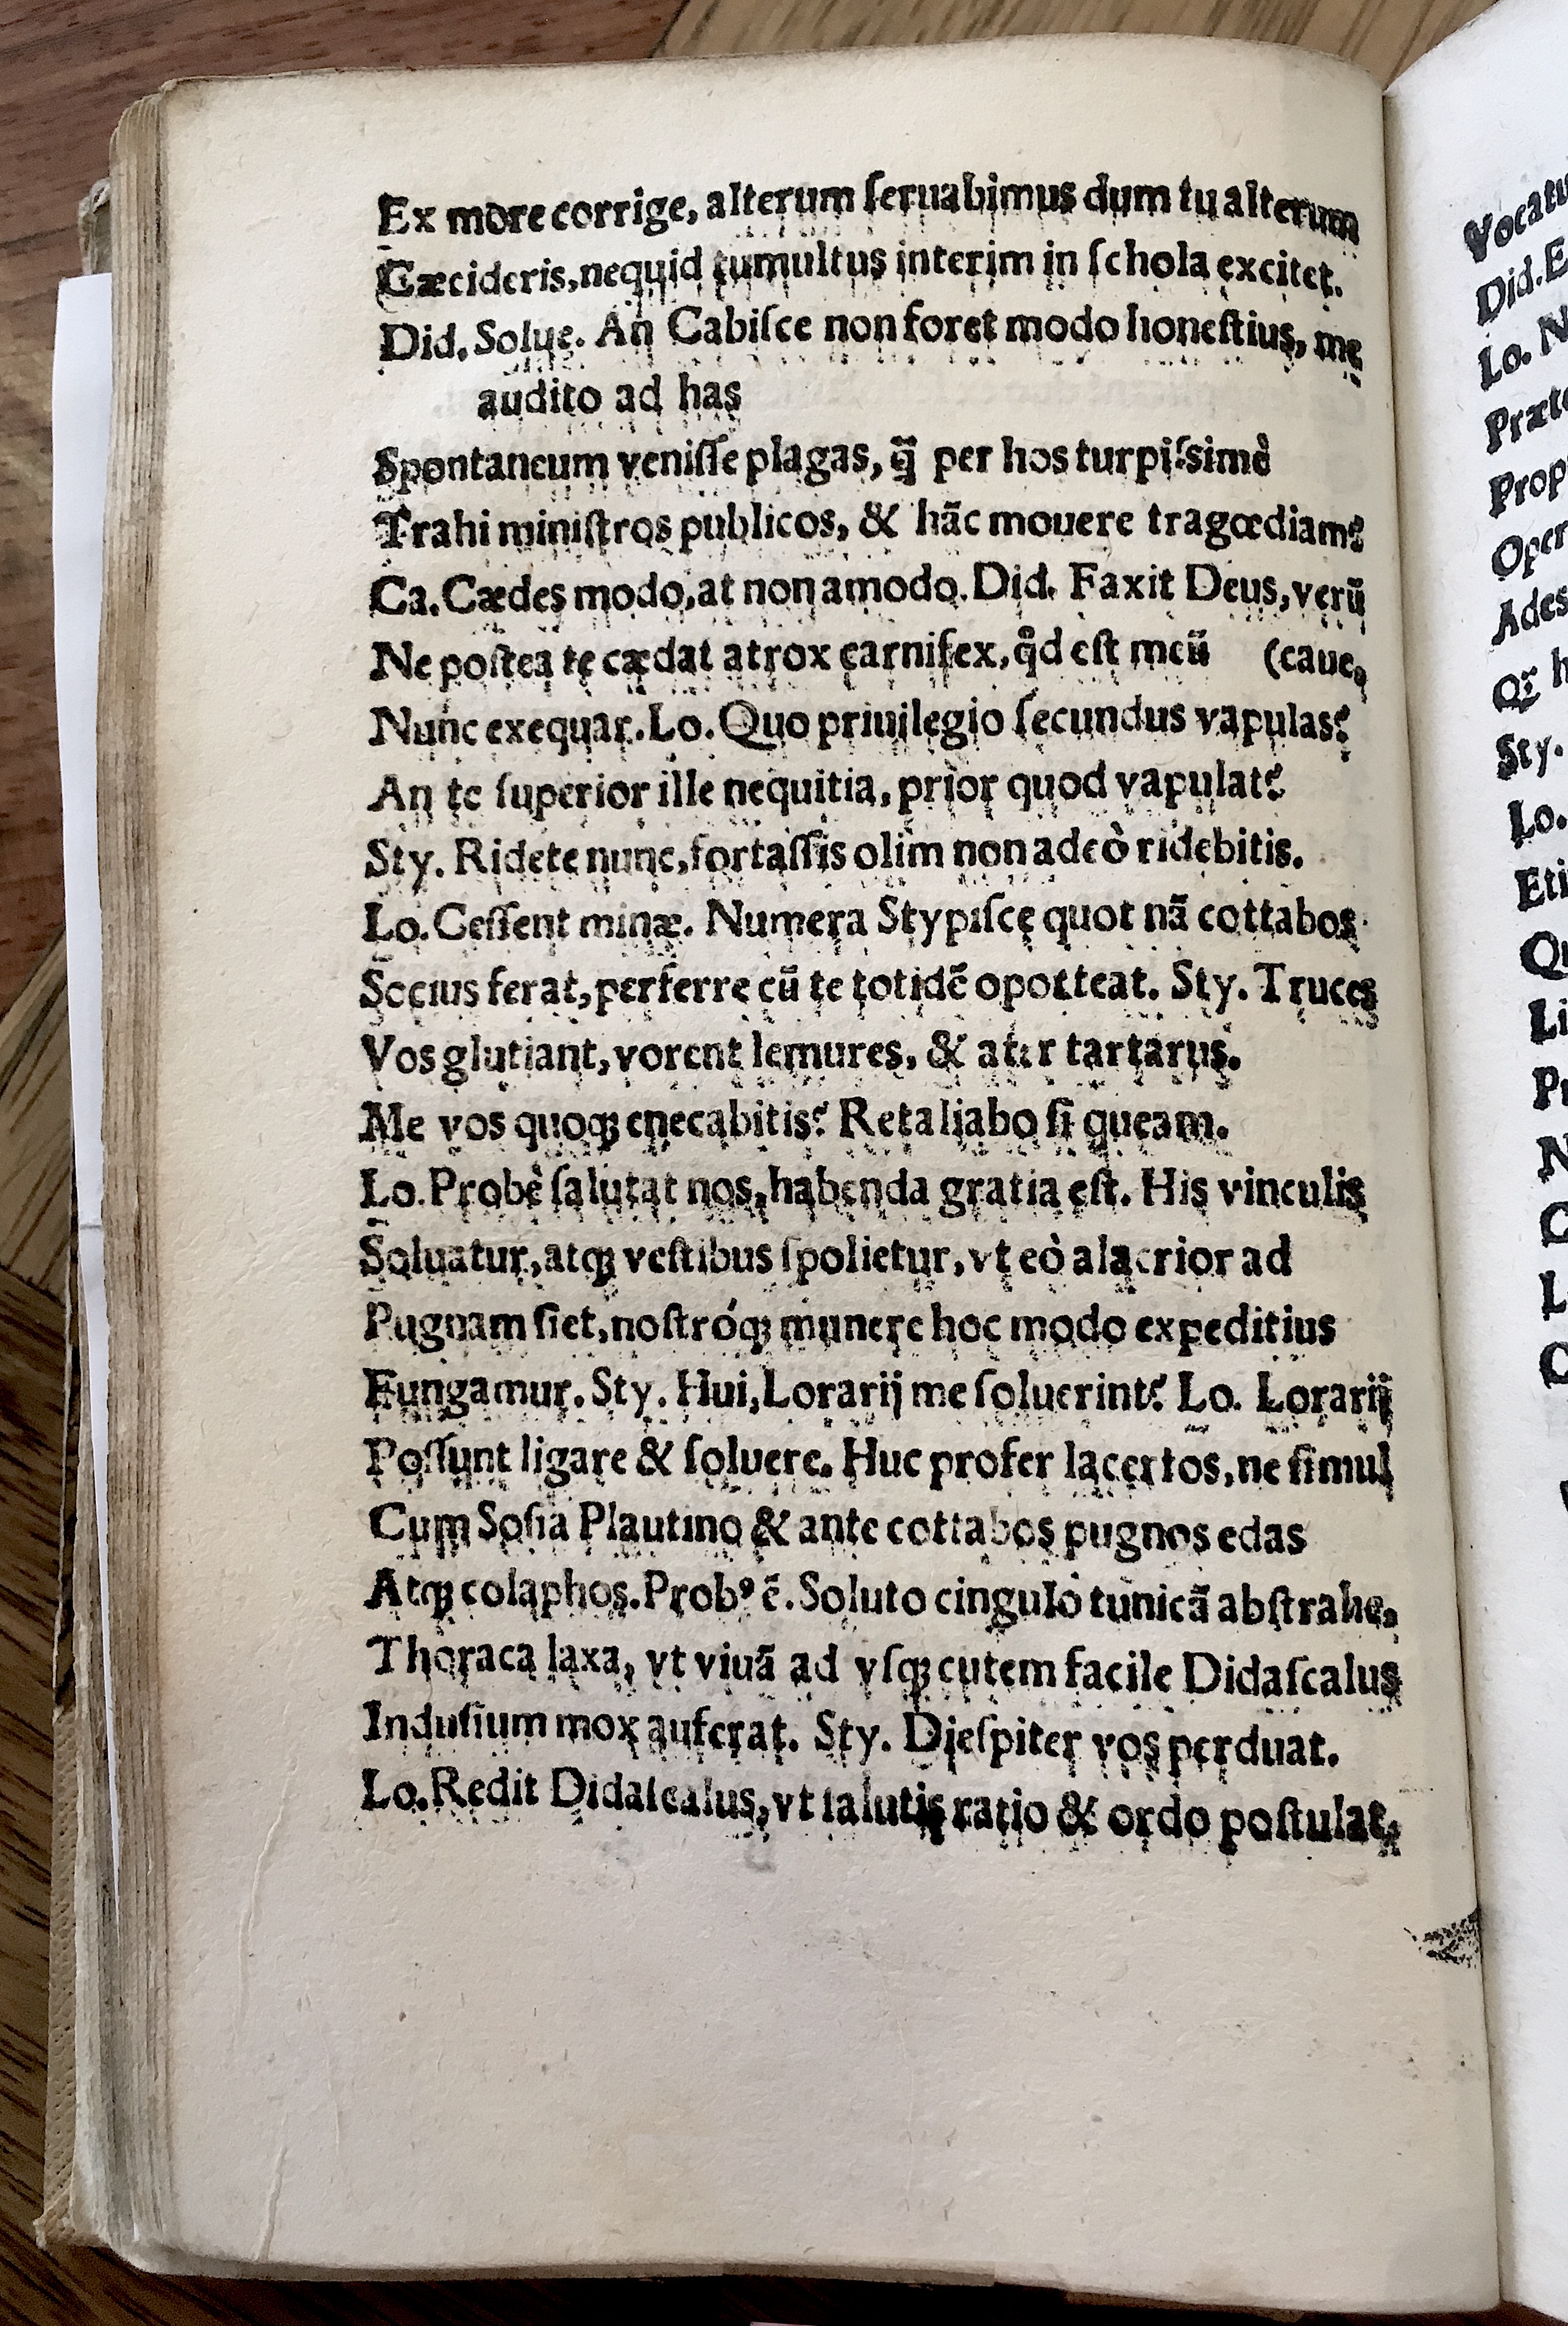 Ex more corrige, alterum ſeruabimus dum tu alterum
Cæcideris, nequid tumultus interim in ſchola excitet.
Did. Solue. An Cabiſce non foret modo honeſtius, me
audito ad has
Spontaneum veniſſe plagas, q̃ per hos turpiſsimè
Trahi miniſtros publicos, & hãc mouere tragœdiam?
Ca. Cædes modo, at non amodo. Did. Faxit Deus, verũ
Ne poſtea te cædat atrox carnifex, qd̓ eſt meũ (caue,
Nunc exequar. Lo. Quo priuilegio ſecundus vapulas?
An te ſuperior ille nequitia, prior quod vapulat?
Sty. Ridete nunc, fortaſſis olim non adeò ridebitis.
Lo. Ceſſent minæ. Numera Stypiſce quot nã cottabos
Socius ferat, perferre cũ te totidẽ opotteat. Sty. Truces
Vos glutiant, vorent lemures, & ater tartarus.
Me vos quoqꝫ enecabitis? Retaliabo ſi queam.
Lo. Probè ſalutat nos, habenda gratia eſt. His vinculis
Soluatur, atqꝫ veſtibus ſpolietur, vt eò alacrior ad
Pugnam ſiet, noſtróqꝫ munere hoc modo expeditius
Fungamur. Sty. Hui, Lorarij me ſoluerint? Lo. Lorarij
Poſſunt ligare & ſoluere. Huc profer lacertos, ne ſimul
Cum Soſia Plautino & ante cottabos pugnos edas
Atqꝫ colaphos. Probꝰ ẽ. Soluto cingulo tunicã abſtrahe,
Thoraca laxa, vt viuã ad vſqꝫ cutem facile Didaſcalus
Induſium mox auferat. Sty. Dieſpiter vos perduat.
Lo. Redit Didaſcalus, vt ſalutis ratio & ordo poſtulat,
Vocatu
Did. E
Lo. N
Præt
Prop
Oper
Ades
Sty.
Lo.
Eti
Qu
Li
Pr
N
C
L
C